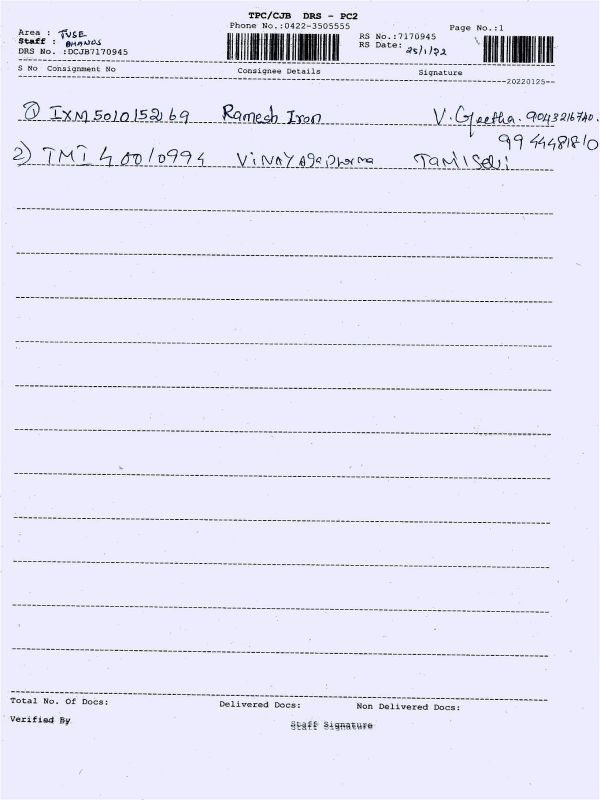 TPC/CJB DRS - PC2
Phone No.:0422-3505555 Page No.:1
Area : TUSE
Staff : BHANOS
DRS No. :DCJB7170945
RS No.:7170945
RS Date: 25/1/22
S No Consignment No Consignee Details Signature
20220125
① IXM501015269 Ramesh Iron V. Geetha. 9043216740.
9944481810
2) TMI40010994 Vinayaga Pharma Tamilselvi
Total No. Of Docs: Delivered Docs: Non Delivered Docs:
Verified By Staff Signature